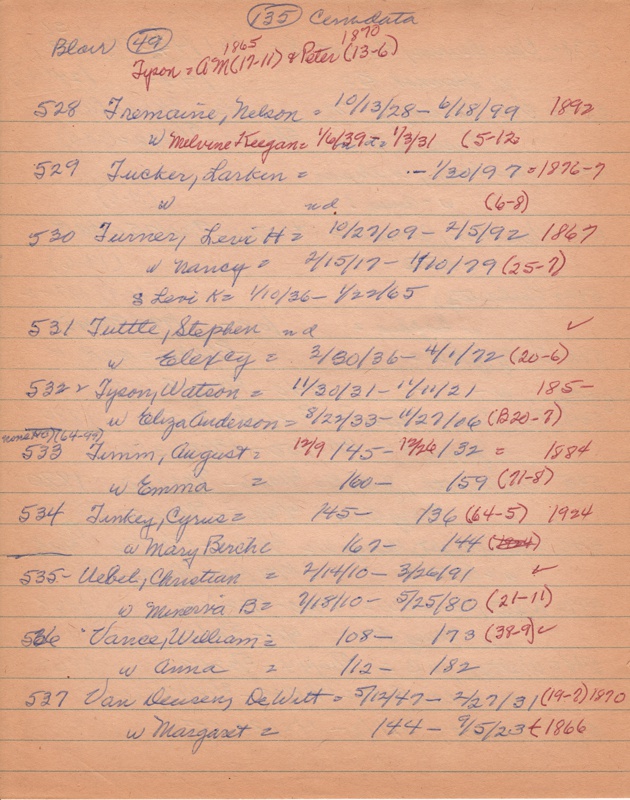 135 Cemdata
Blair 49
1865 1870
Tyson = AM (17-11) & Peter (13-6)
528 Tremaine, Nelson = 10/13/28 - 6/18/99 1892
w Melvine Keegan = 1/6/39 - 1/3/31 (5-12
529 Tucker, Larkin = - 1/30/97 = 1876-7
w nd (6-8)
530 Turner, Levi H = 10/27/09 - 2/5/92 1867
w Nancy = 2/15/17 - 1/10/79 (25-7)
s Levi K = 1/10/36 - 1/22/65
531 Tuttle, Stephen nd ✓
w Elexey = 3/30/36 - 4/1/72 (20-6)
532 Tyson, Watson = 11/30/31 - 11/11/21 185-
w Eliza Anderson = 8/22/33 - 11/27/06 (B20-7)
(64-99)
533 Timm, August = 12/9/45 - 12/26/32 = 1884
w Emma = /60 - /59 (71-8)
534 Tinkey, Cyrus = /45 - /36 (64-5) 1924
w Mary Berche /67 - /44 (1924)
535 - Uebel, Christian = 2/14/10 - 3/26/91 ✓
w Minerva B = 7/18/10 - 5/25/80 (21-11)
536 Vance, William = /08 - /73 (38-9) ✓
w Anna = /12 - /82
537 Van Deusen, DeWitt = 5/12/47 - 2/27/31 (19-7) 1870
w Margaret = /44 - 9/5/23 1866